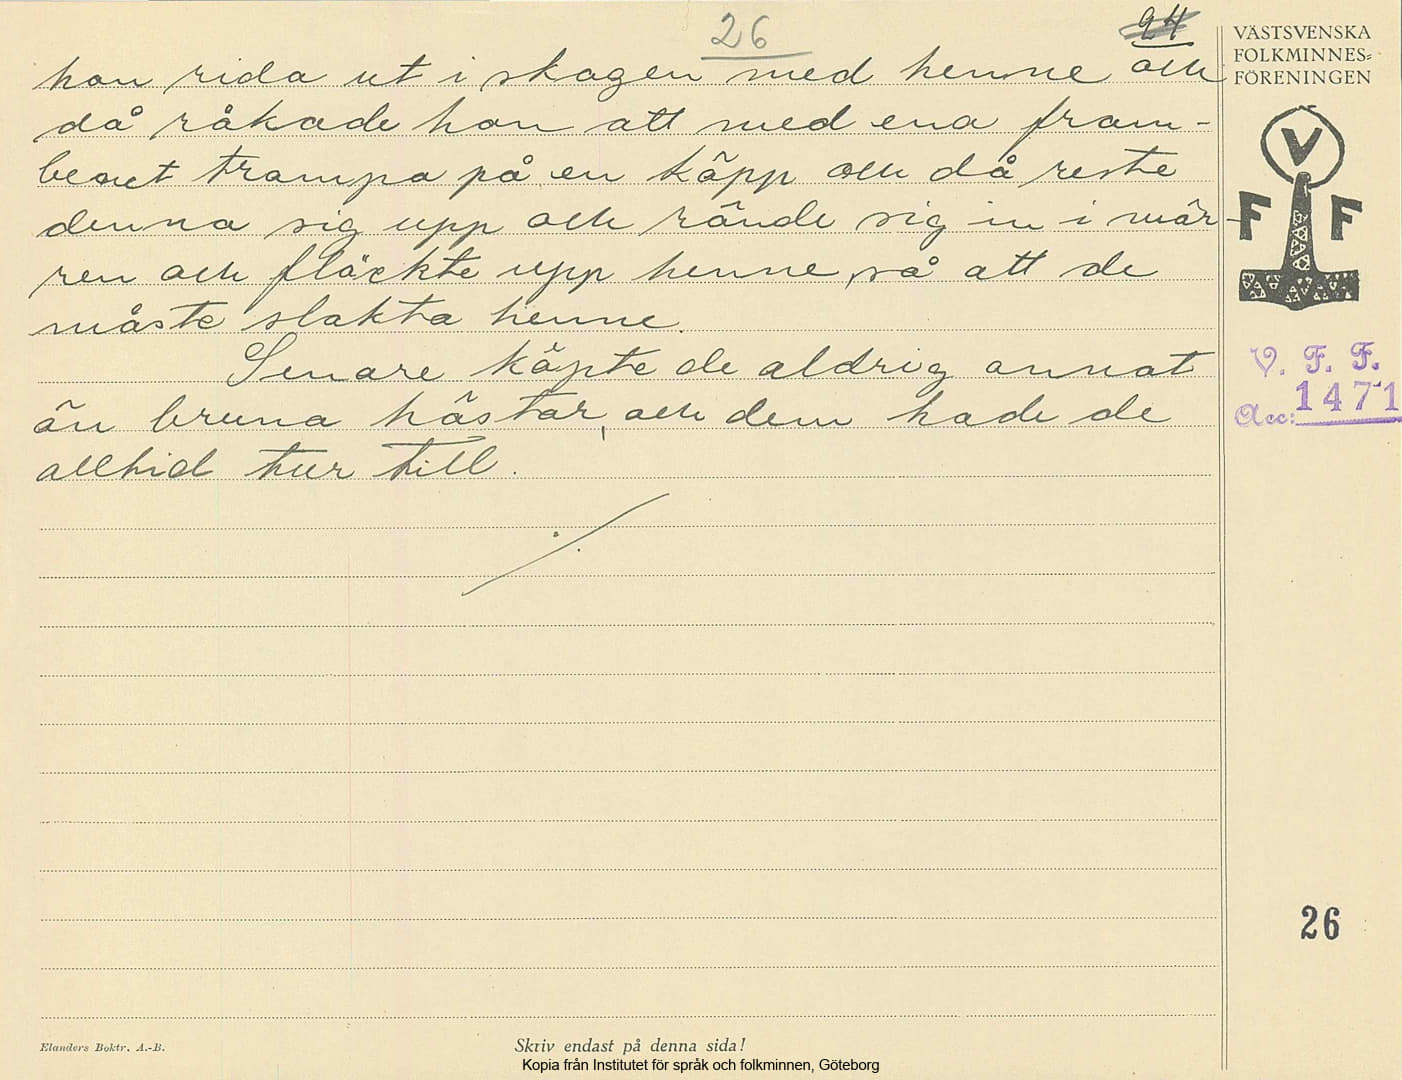 26
24
hon rida ut i skogen med henne och
då råkade hon att med ena fram-
benet trampa på en käpp och då reste
denna sig upp och rände sig in i mär-
ren och fläckte upp henne, så att de
måste slakta henne.
Senare köpte de aldrig annat
än bruna hästar, och dem hade de
alltid tur till.
VÄSTSVENSKA
FOLKMINNES=
FÖRENINGEN
V
F F
V. F. F.
Acc: 1471
26
Elanders Boktr. A.-B.
Skriv endast på denna sida!
Kopia från Institutet för språk och folkminnen, Göteborg